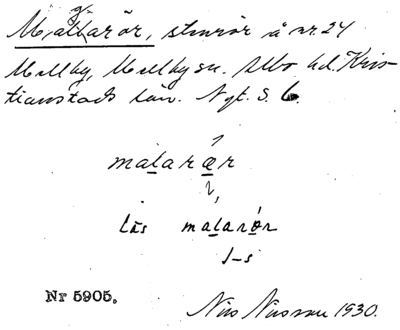 Mattarör, stenrör å nr. 24
Mellby, Mellby sn. Albo hd. Kris-
tianstads län. Nyt. S. 6.
matarær
läs matarør
1-s
Nr 5905.
Nils Nilsson 1930.